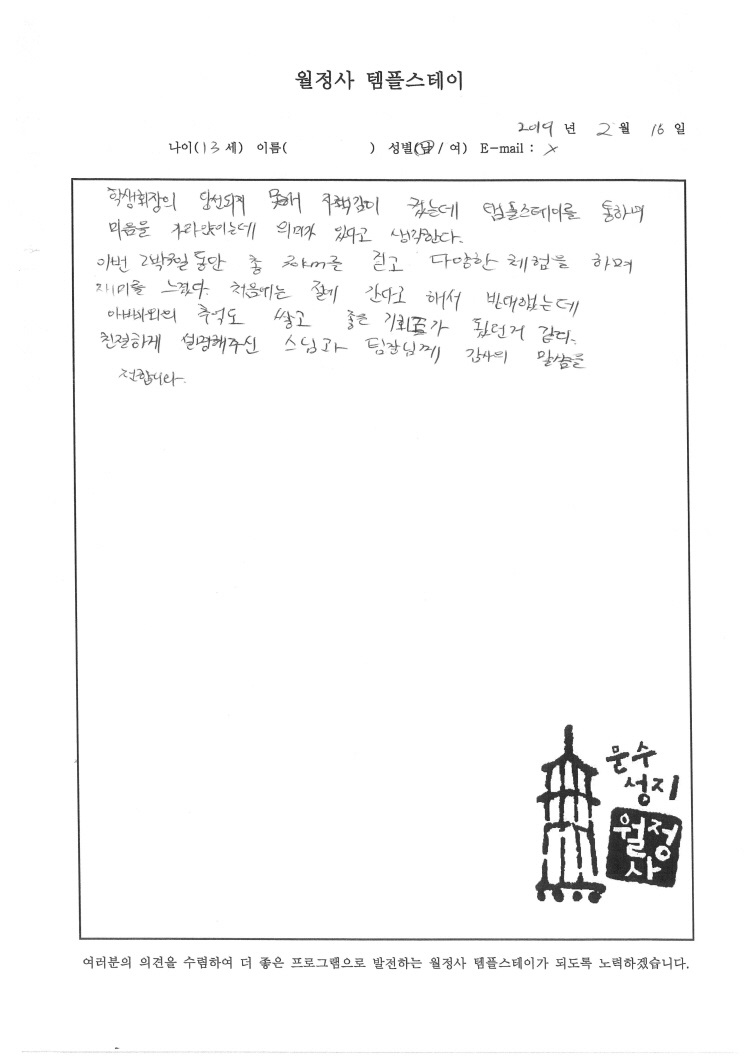 월정사 템플스테이
2019 년 2 월 16 일
나이(13 세) 이름( ) 성별(남 / 여) E-mail : X
학생회장의 당선되지 못해 자책감이 컸는데 템플스테이를 통하여
마음을 가라앉이는데 의미가 있다고 생각한다.
이번 2박3일 동안 총 30km를 걷고 다양한 체험을 하며
재미를 느꼈다. 처음에는 절에 간다고 해서 반대했는데
아빠와의 추억도 쌓고 좋은 기회가 됬던거 같다.
친절하게 설명해주신 스님과 팀장님께 감사의 말씀을
전합니다.
문수
성지
월정
사
여러분의 의견을 수렴하여 더 좋은 프로그램으로 발전하는 월정사 템플스테이가 되도록 노력하겠습니다.